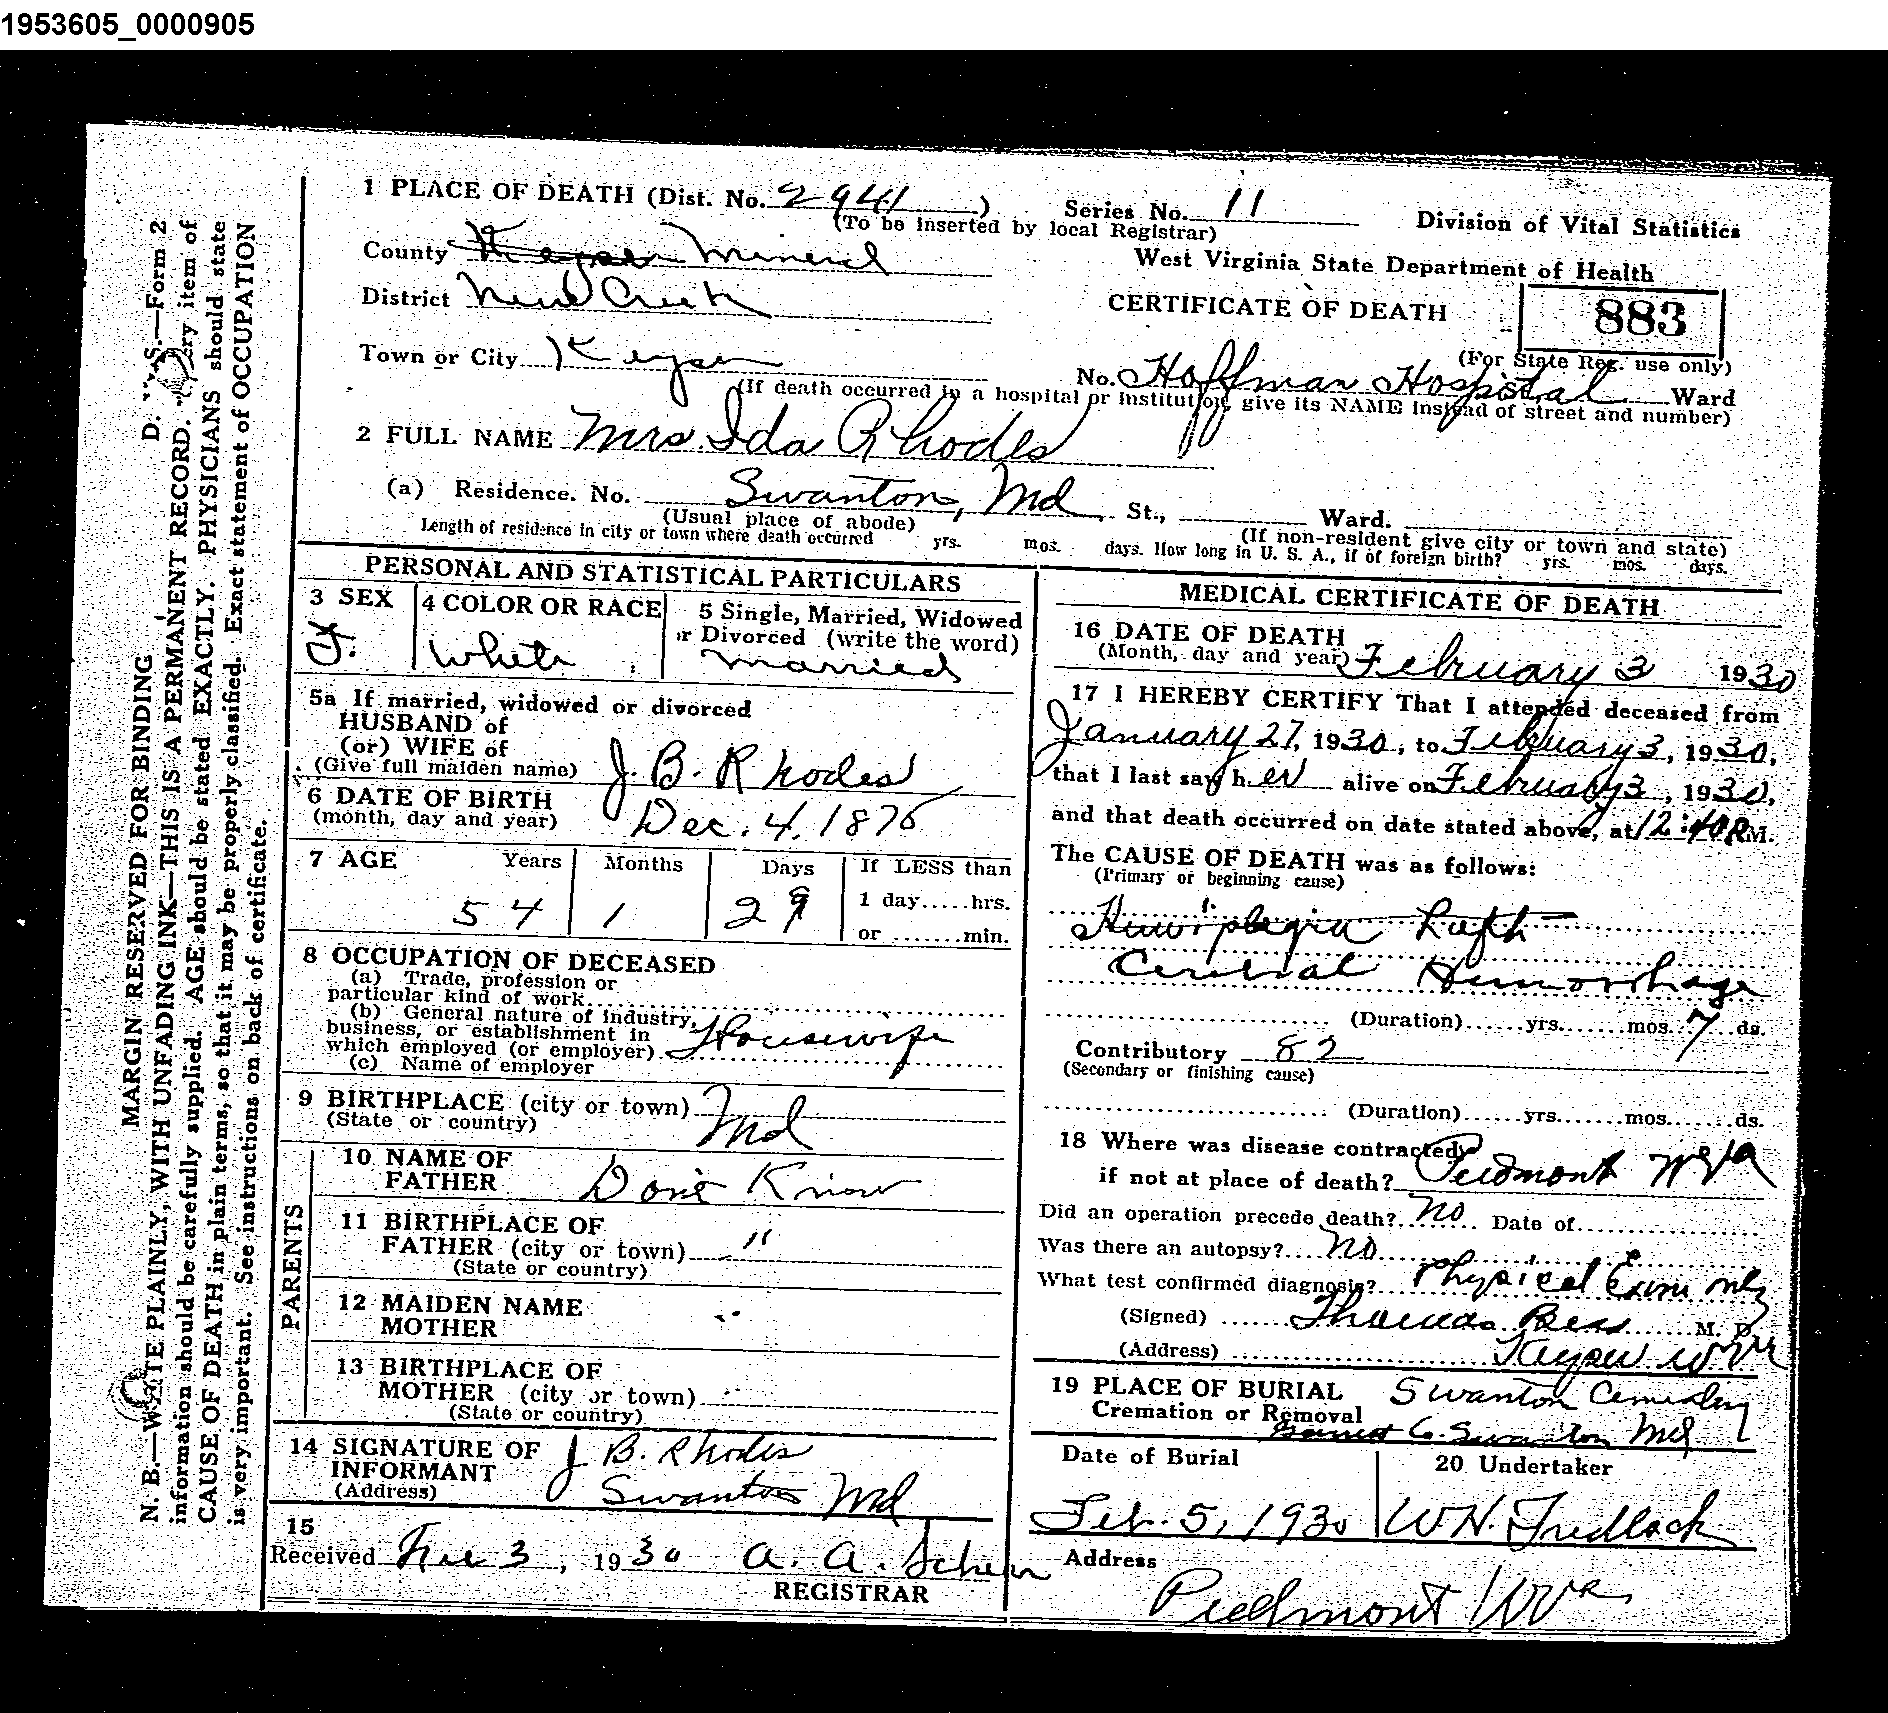 1953605_0000905
1 PLACE OF DEATH (Dist. No. 2941 )
(To be inserted by local Registrar)
Series No. 11
Division of Vital Statistics
County Keyser Mineral
West Virginia State Department of Health
District New Creek
CERTIFICATE OF DEATH
883
(For State Reg. use only)
Town or City Keyser
No. Hoffman Hospital Ward
(If death occurred in a hospital or institution, give its NAME instead of street and number)
2 FULL NAME Mrs. Ida Rhodes
(a) Residence. No. Swanton, Md St., Ward.
(Usual place of abode)
(If non-resident give city or town and state)
Length of residence in city or town where death occurred yrs. mos. days. How long in U. S. A., if of foreign birth? yrs. mos. days.
PERSONAL AND STATISTICAL PARTICULARS
3 SEX
F.
4 COLOR OR RACE
White
5 Single, Married, Widowed
or Divorced (write the word)
married
5a If married, widowed or divorced
HUSBAND of
(or) WIFE of
(Give full maiden name) J. B. Rhodes
6 DATE OF BIRTH
(month, day and year) Dec. 4, 1875
7 AGE Years Months Days If LESS than
54 1 29 1 day.....hrs.
or .......min.
8 OCCUPATION OF DECEASED
(a) Trade, profession or
particular kind of work
(b) General nature of industry,
business, or establishment in
which employed (or employer) Housewife
(c) Name of employer
9 BIRTHPLACE (city or town) Md
(State or country)
PARENTS
10 NAME OF
FATHER Don't Know
11 BIRTHPLACE OF
FATHER (city or town) "
(State or country)
12 MAIDEN NAME
MOTHER "
13 BIRTHPLACE OF
MOTHER (city or town) "
(State or country)
14 SIGNATURE OF
INFORMANT J B. Rhodes
(Address) Swanton Md
15
Received 3, 1930 A. A.
REGISTRAR
MEDICAL CERTIFICATE OF DEATH
16 DATE OF DEATH
(Month, day and year) February 3 1930
17 I HEREBY CERTIFY That I attended deceased from
January 27, 1930, to February 3, 1930,
that I last saw her alive on February 3, 1930,
and that death occurred on date stated above, at 12:40 P.M.
The CAUSE OF DEATH was as follows:
(Primary or beginning cause)
Hemiplegia Left
Cerebral Hemorrhage
(Duration)......yrs.......mos. 7 ds.
Contributory 82
(Secondary or finishing cause)
(Duration)......yrs.......mos.......ds.
18 Where was disease contracted
if not at place of death? Piedmont W Va
Did an operation precede death? No Date of
Was there an autopsy? No
What test confirmed diagnosis? Physical Exam only
(Signed) Thomas Bess M. D.
(Address) Keyser W Va
19 PLACE OF BURIAL
Cremation or Removal
Swanton Cemetery
Garrett Co. Swanton Md
Date of Burial
Feb. 5, 1930
20 Undertaker
W.H. Fredlock
Address
Piedmont W Va
MARGIN RESERVED FOR BINDING
D. S.—Form 2
N. B.—WRITE PLAINLY, WITH UNFADING INK—THIS IS A PERMANENT RECORD. Every item of
information should be carefully supplied. AGE should be stated EXACTLY. PHYSICIANS should state
CAUSE OF DEATH in plain terms, so that it may be properly classified. Exact statement of OCCUPATION
is very important. See instructions on back of certificate.